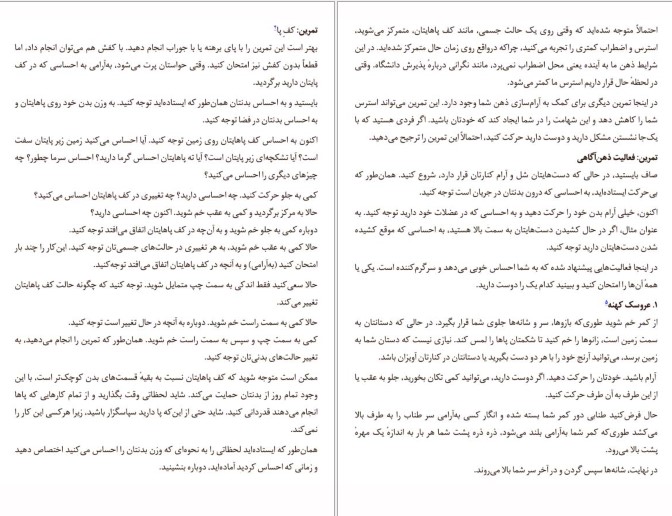 احتمالاً متوجه شده‌اید که وقتی روی یک حالت جسمی، مانند کف پاهایتان، متمرکز می‌شوید،
استرس و اضطراب کمتری را تجربه می‌کنید، چراکه درواقع روی زمان حال متمرکز شده‌اید. در این
شرایط ذهن ما به آینده یعنی محل اضطراب نمی‌پرد، مانند نگرانی دربارهٔ پذیرش دانشگاه. وقتی
در لحظهٔ حال قرار داریم استرس ما کمتر می‌شود.
در اینجا تمرین دیگری برای کمک به آرام‌سازی ذهن شما وجود دارد. این تمرین می‌تواند استرس
شما را کاهش دهد و این شهامت را در شما ایجاد کند که خودتان باشید. اگر فردی هستید که با
یک‌جا نشستن مشکل دارید و دوست دارید حرکت کنید، احتمالاً این تمرین را ترجیح می‌دهید.
تمرین: فعالیت ذهن‌آگاهی
صاف بایستید، در حالی که دست‌هایتان شل و آرام کنارتان قرار دارد، شروع کنید. همان‌طور که
بی‌حرکت ایستاده‌اید، به احساسی که درون بدنتان در جریان است توجه کنید.
اکنون، خیلی آرام بدن خود را حرکت دهید و به احساسی که در عضلات خود دارید توجه کنید. به
عنوان مثال، اگر در حال کشیدن دست‌هایتان به سمت بالا هستید، به احساسی که موقع کشیده
شدن دست‌هایتان دارید توجه کنید.
در اینجا فعالیت‌هایی پیشنهاد شده که به شما احساس خوبی می‌دهد و سرگرم‌کننده است. یکی یا
همهٔ آن‌ها را امتحان کنید و ببینید کدام یک را دوست دارید.
۱. عروسک کهنه⁵
از کمر خم شوید طوری‌که بازوها، سر و شانه‌ها جلوی شما قرار بگیرد. در حالی که دستانتان به
سمت زمین است، زانوها را خم کنید تا شکمتان پاها را لمس کند. نیازی نیست که دستان شما به
زمین برسد، می‌توانید آرنج خود را با هر دو دست بگیرید یا دستانتان در کنارتان آویزان باشد.
آرام باشید. خودتان را حرکت دهید. اگر دوست دارید، می‌توانید کمی تکان بخورید، جلو به عقب یا
از این طرف به آن طرف حرکت کنید.
حال فرض کنید طنابی دور کمر شما بسته شده و انگار کسی به‌آرامی سر طناب را به طرف بالا
می‌کشد طوری‌که کمر شما به‌آرامی بلند می‌شود، ذره ذره پشت شما هر بار به اندازهٔ یک مهرهٔ
پشت بالا می‌رود.
در نهایت، شانه‌ها سپس گردن و در آخر سر شما بالا می‌روند.
تمرین: کف پا⁴
بهتر است این تمرین را با پای برهنه یا با جوراب انجام دهید. با کفش هم می‌توان انجام داد، اما
قطعاً بدون کفش نیز امتحان کنید. وقتی حواستان پرت می‌شود، به‌آرامی به احساسی که در کف
پایتان دارید برگردید.
بایستید و به احساس بدنتان همان‌طور که ایستاده‌اید توجه کنید. به وزن بدن خود روی پاهایتان و
به احساس بدنتان در فضا توجه کنید.
اکنون به احساس کف پاهایتان روی زمین توجه کنید. آیا احساس می‌کنید زمین زیر پایتان سفت
است؟ آیا تشکچه‌ای زیر پایتان است؟ آیا ته پاهایتان احساس گرما دارید؟ احساس سرما چطور؟ چه
چیزهای دیگری را احساس می‌کنید؟
کمی به جلو حرکت کنید. چه احساسی دارید؟ چه تغییری در کف پاهایتان احساس می‌کنید؟
حالا به مرکز برگردید و کمی به عقب خم شوید. اکنون چه احساسی دارید؟
دوباره کمی به جلو خم شوید و به آن‌چه در کف پاهایتان اتفاق می‌افتد توجه کنید.
حالا کمی به عقب خم شوید. به هر تغییری در حالت‌های جسمی‌تان توجه کنید. این‌کار را چند بار
امتحان کنید (به‌آرامی) و به آنچه در کف پاهایتان اتفاق می‌افتد توجه‌کنید.
حالا سعی‌کنید فقط اندکی به سمت چپ متمایل شوید. توجه کنید که چگونه حالت کف پاهایتان
تغییر می‌کند.
حالا کمی به سمت راست خم شوید. دوباره به آنچه در حال تغییر است توجه کنید.
کمی به سمت چپ و سپس به سمت راست خم شوید. همان‌طور که تمرین را انجام می‌دهید، به
تغییر حالت‌های بدنی‌تان توجه کنید.
ممکن است متوجه شوید که کف پاهایتان نسبت به بقیهٔ قسمت‌های بدن کوچک‌تر است، با این
وجود تمام روز از بدنتان حمایت می‌کند. شاید لحظاتی وقت بگذارید و از تمام کارهایی که پاها
انجام می‌دهند قدردانی کنید. شاید حتی از این‌که پا دارید سپاسگزار باشید، زیرا هرکسی این کار را
نمی‌کند.
همان‌طور که ایستاده‌اید لحظاتی را به نحوه‌ای که وزن بدنتان را احساس می‌کنید اختصاص دهید
و زمانی که احساس کردید آماده‌اید، دوباره بنشینید.